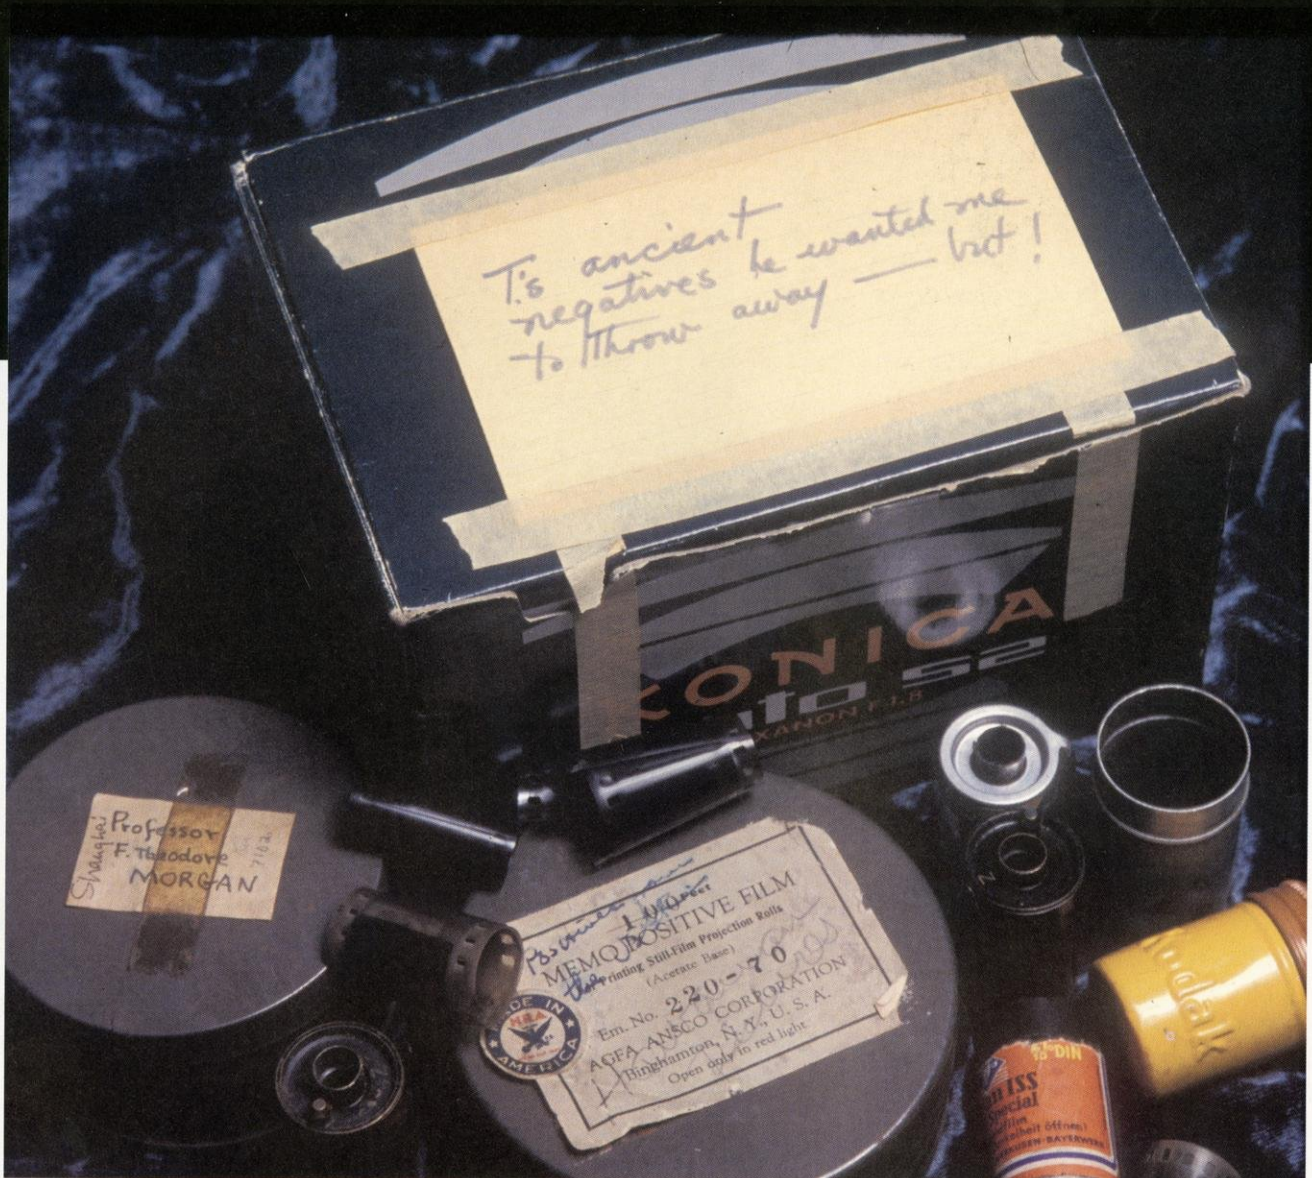 T's ancient
negatives he wanted me
to throw away — but!
KONICA
auto S2
XANON F:1.8
Shanghai
Professor
F. Theodore
MORGAN
7102
100 Feet
MEMO POSITIVE FILM
Printing Still-Film Projection Rolls
(Acetate Base)
Em. No. 220-70
AGFA ANSCO CORPORATION
Binghamton, N.Y., U. S. A.
Open only in red light
MADE IN
NRA
AMERICA
N
Kodak
10 DIN
ISS
Special
film